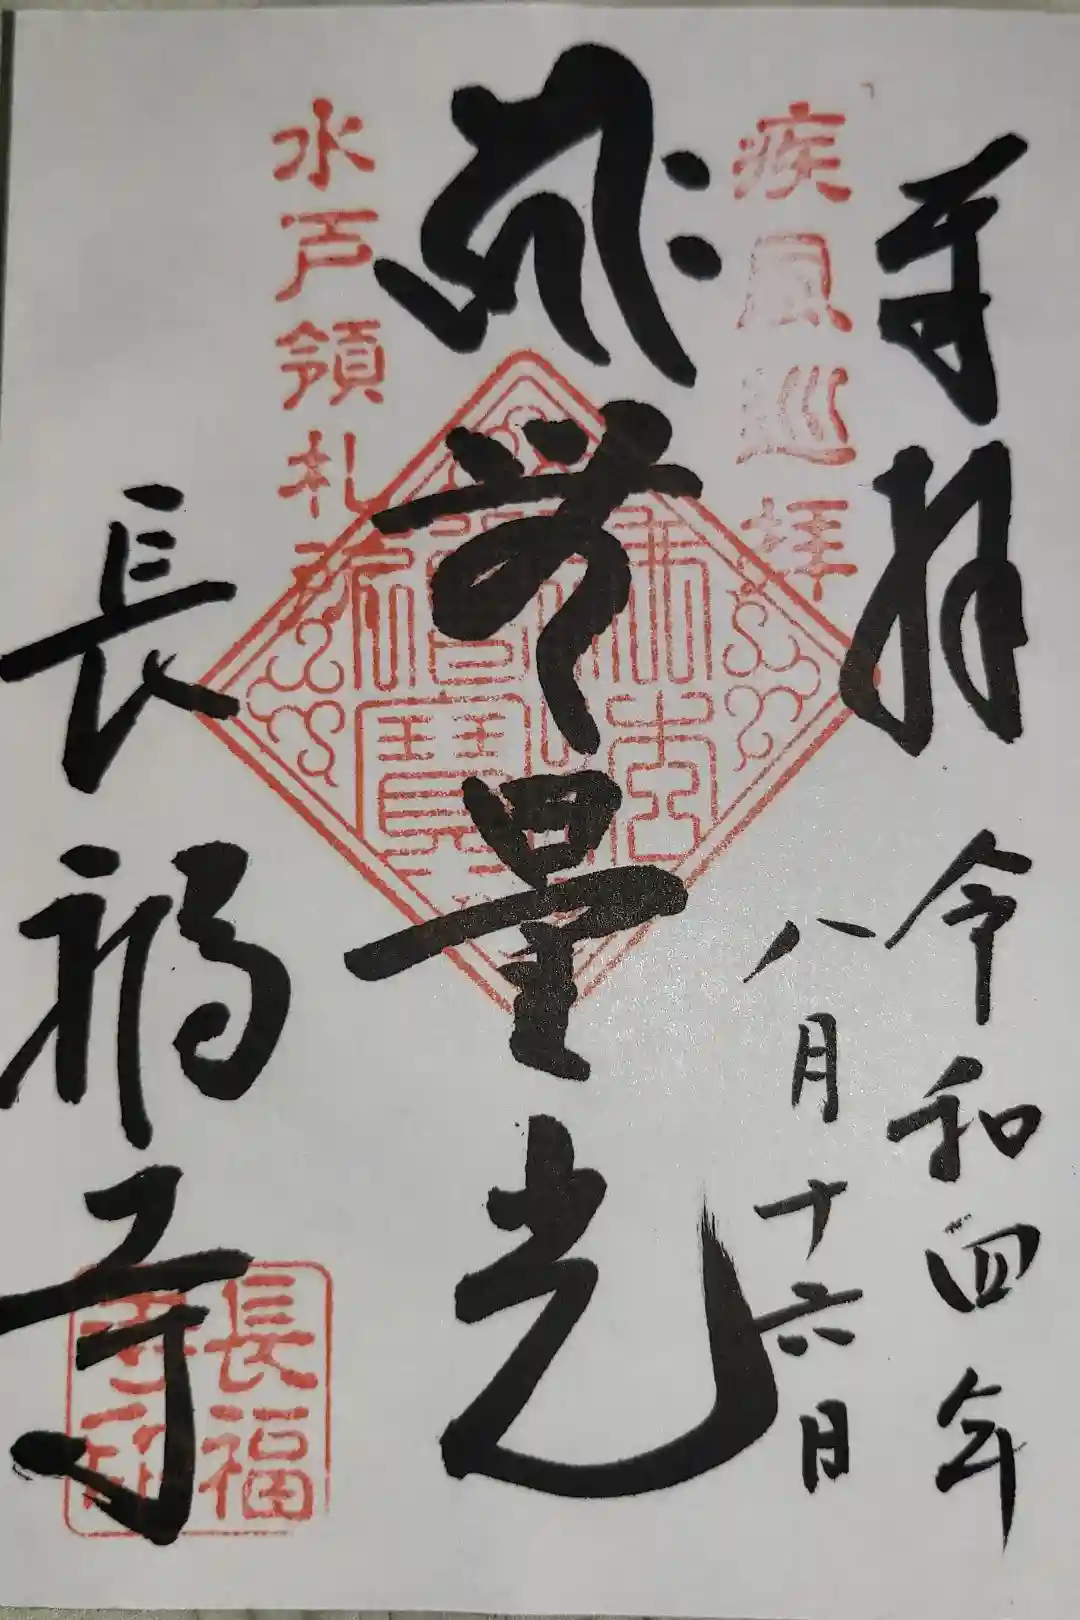 奉拝
令和四年
八月十六日
疾風巡拝
無量光
水戸領札所
長福寺
佛法僧寶
長福寺印